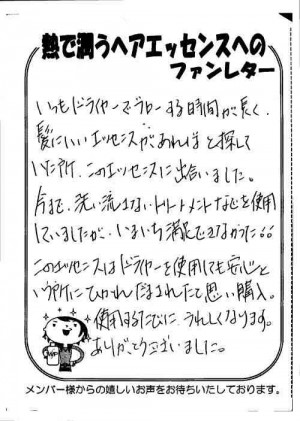 熱で潤うヘアエッセンスへの
ファンレター
いつもドライヤーでブローする時間が長く、
髪にいいエッセンスがあればと探して
いた所、このエッセンスに出合いました。
今まで、洗い流さないトリートメントなどを使用
していましたが、いまいち満足できなかった。。
このエッセンスはドライヤーを使用しても安心と
いう所にひかれ、だまされたと思い購入。
使用するたびに、うれしくなります。
ありがとうございました。
メンバー様からの嬉しいお声をお待ちいたしております。